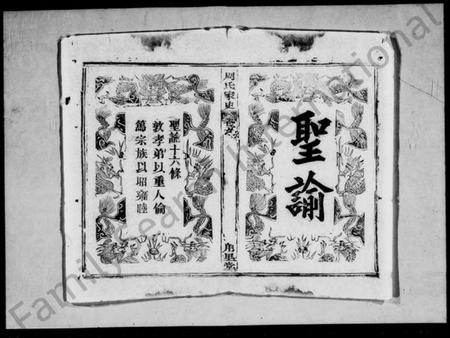 聖諭
周氏家史
聖諭十六條
敦孝弟以重人倫
萬宗族以昭雍睦
Family Search International